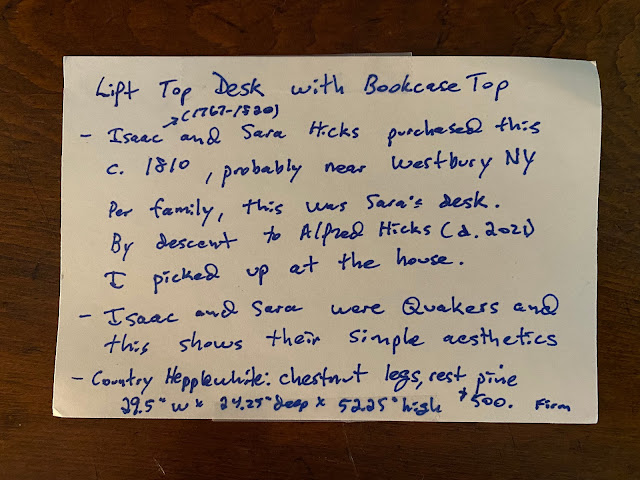 Lift Top Desk with Bookcase Top
(1767-1820)
- Isaac and Sara Hicks purchased this
c. 1810, probably near Westbury NY
Per family, this was Sara's desk.
By descent to Alfred Hicks (d. 2021)
I picked up at the house.
- Isaac and Sara were Quakers and
this shows their simple aesthetics
- Country Hepplewhite: chestnut legs, rest pine
29.5" w x 24.25" deep x 52.25" high $500. Firm